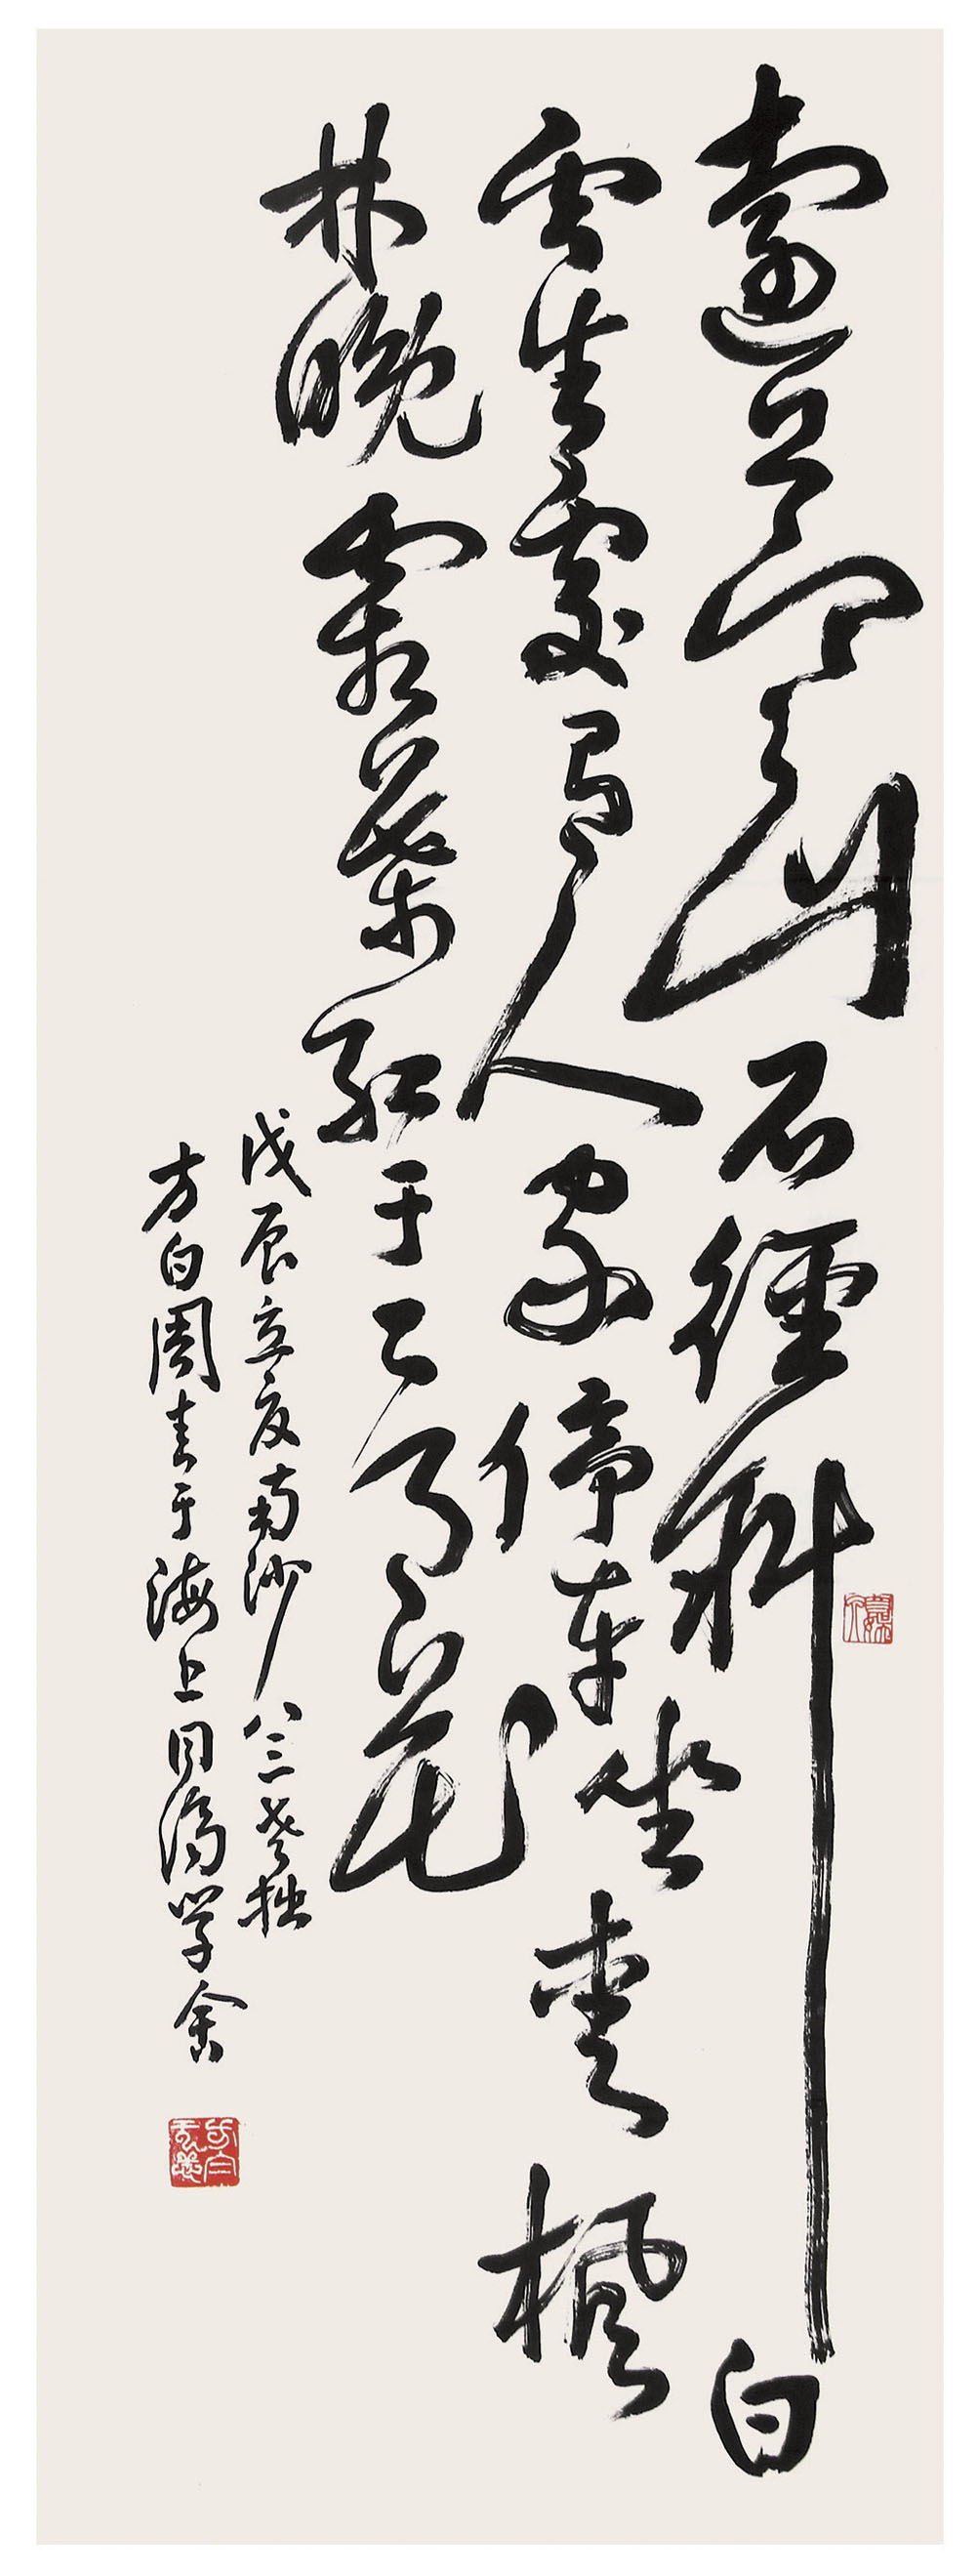 遠上寒山石徑斜白
雲生處有人家停車坐愛楓
林晚霜葉紅于二月花
戊辰立夏南沙八三老拙
方白周圭于海上同濟学舍